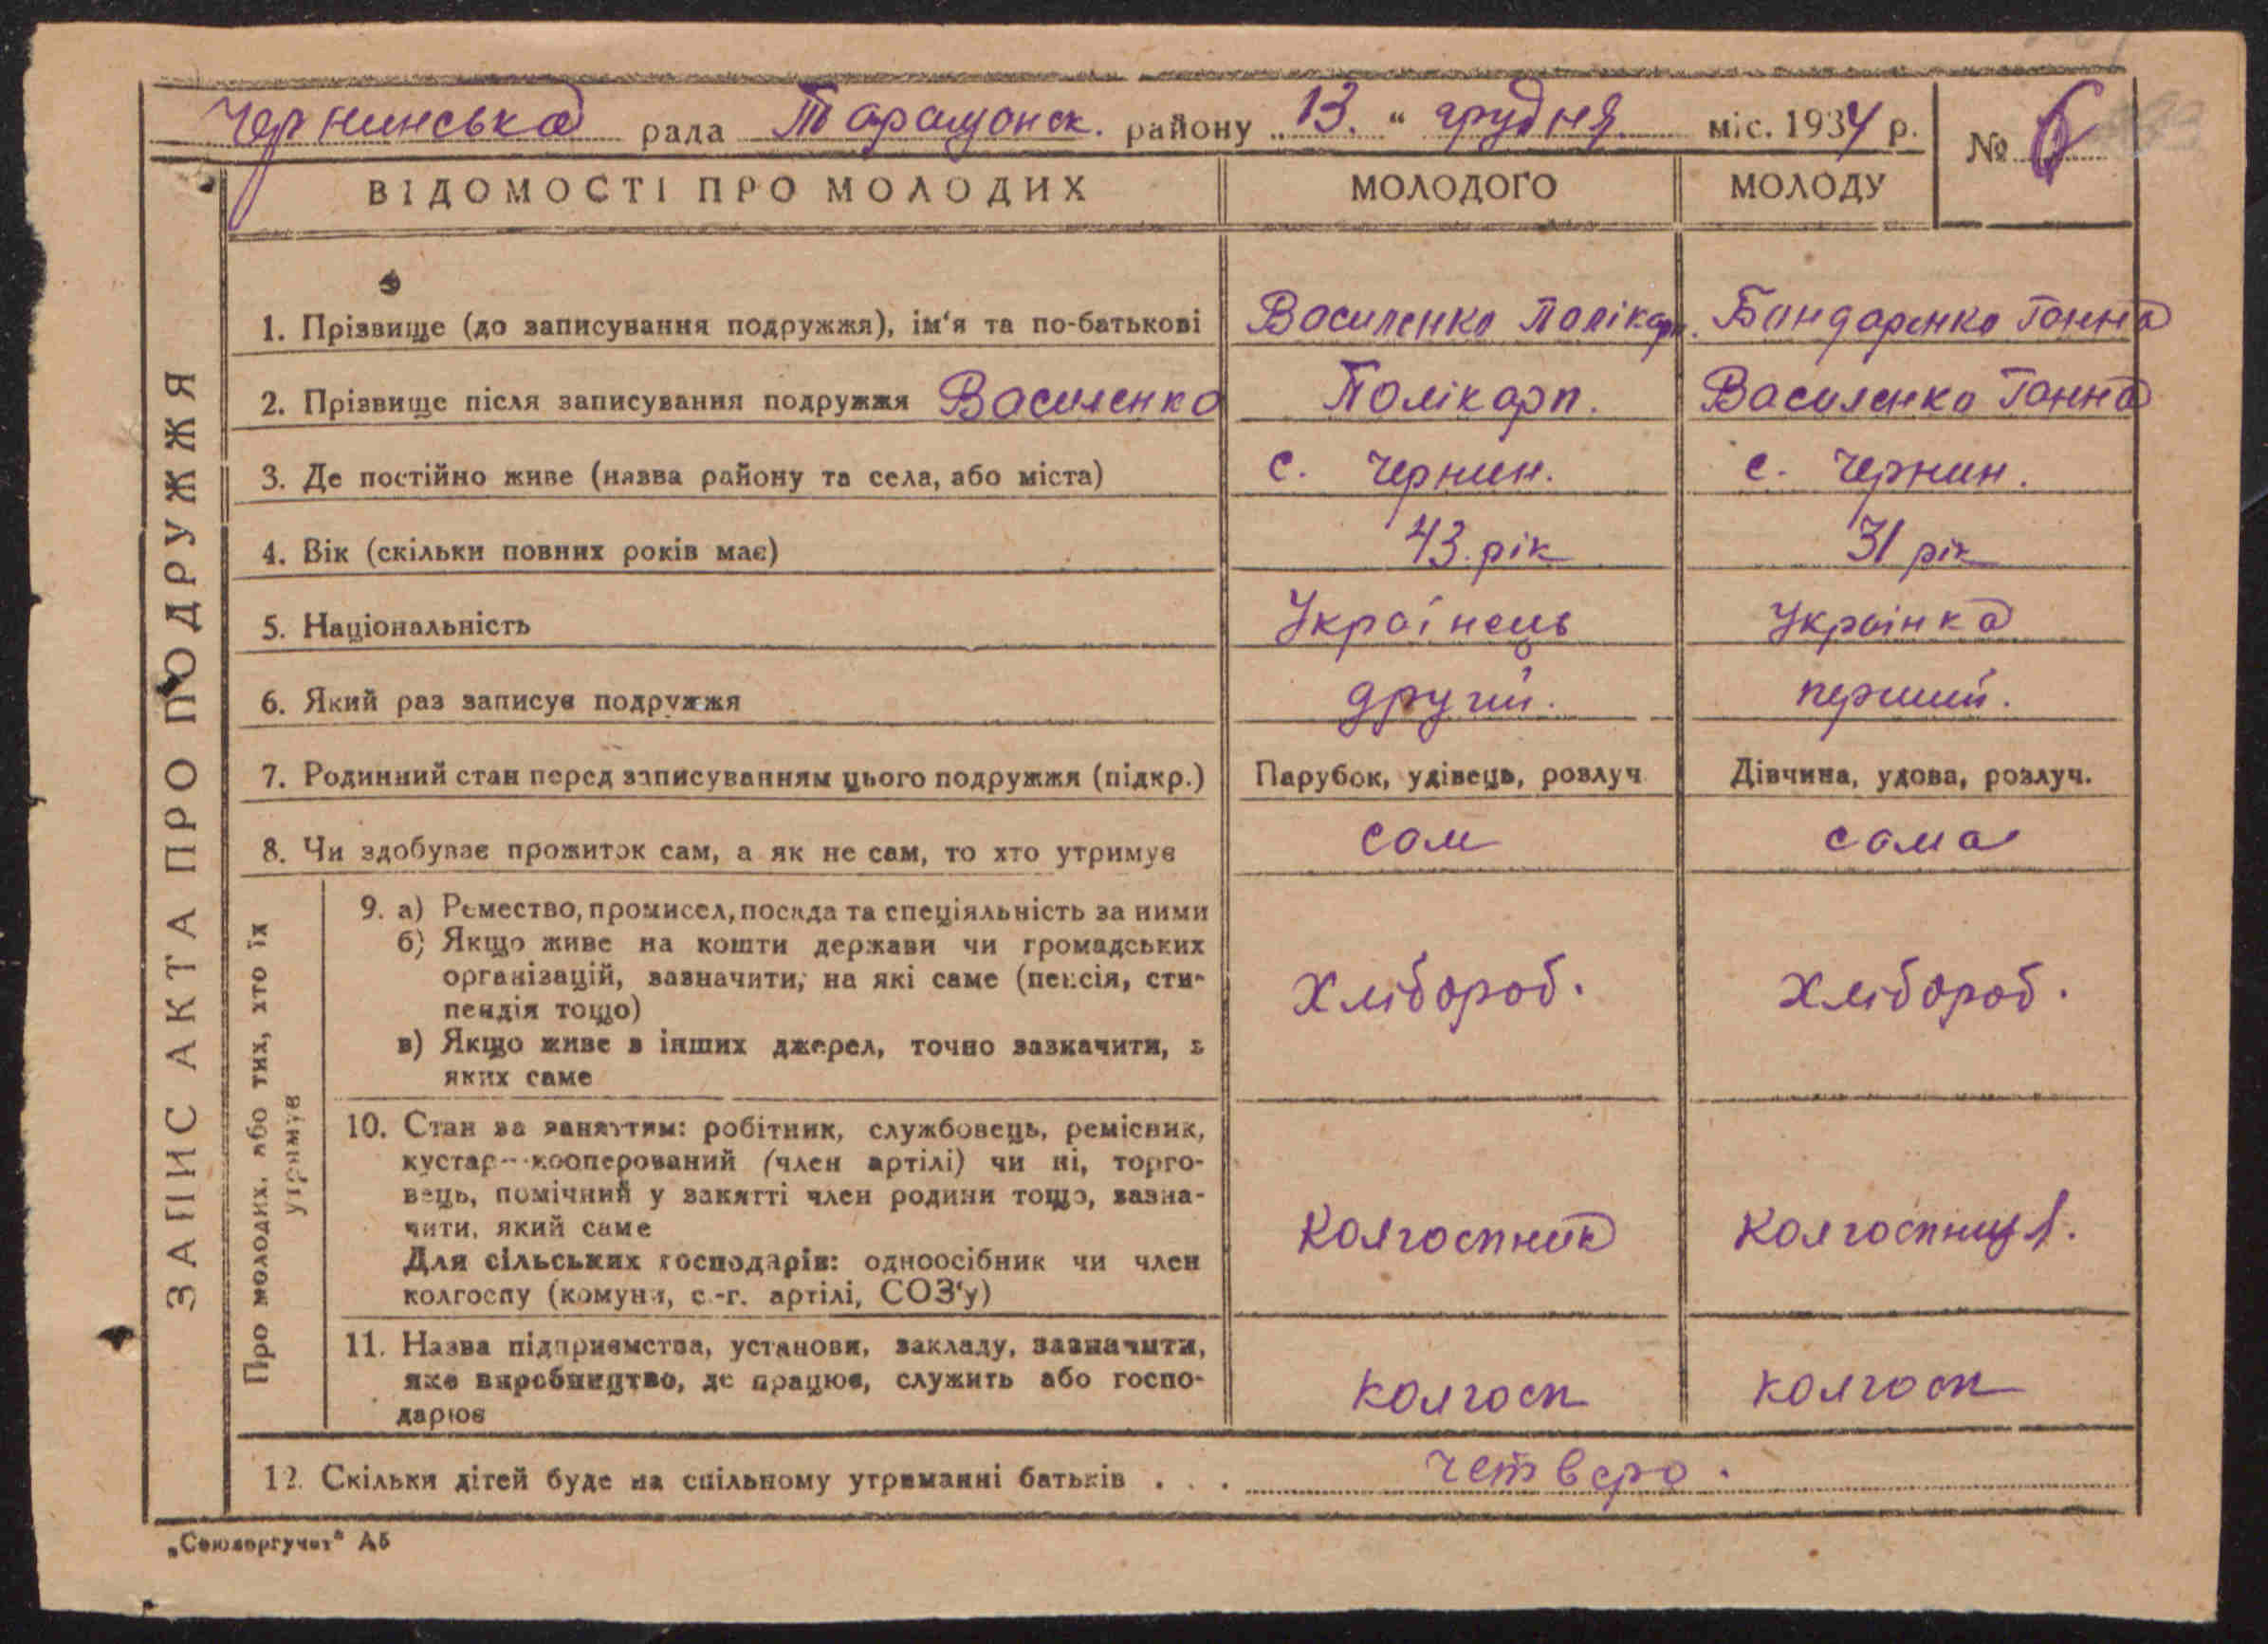 Чернинська рада Таращанск. району „13." грудня міс. 1934 р.
№ 6
ВІДОМОСТІ ПРО МОЛОДИХ МОЛОДОГО МОЛОДУ
ЗАПИС АКТА ПРО ПОДРУЖЖЯ
1. Прізвище (до записування подружжя), ім'я та по-батькові Василенко Полікарп. Бондаренко Ганна
2. Прізвище після записування подружжя Василенко Полікарп. Василенко Ганна
3. Де постійно живе (назва району та села, або міста) с. Чернин. с. Чернин.
4. Вік (скільки повних років має) 43. рік 31 рік
5. Національність Українець Українка
6. Який раз записує подружжя другий. перший.
7. Родинний стан перед записуванням цього подружжя (підкр.) Парубок, удівець, розлуч Дівчина, удова, розлуч.
8. Чи здобуває прожиток сам, а як не сам, то хто утримує сам сама
Про молодих, або тих, хто їх
утримує
9. а) Ремество, промисел, посада та спеціяльність за ними
б) Якщо живе на кошти держави чи громадських
організацій, зазначити, на які саме (пенсія, сти-
пендія тощо)
в) Якщо живе з інших джерел, точно зазначити, з
яких саме
Хлібороб. Хлібороб.
10. Стан за заняттям: робітник, службовець, ремісник,
кустар--кооперований (член артілі) чи ні, торго-
вець, помічний у занятті член родини тощо, зазна-
чити, який саме
Для сільських господарів: одноосібник чи член
колгоспу (комуни, с.-г. артілі, СОЗ'у)
Колгоспник Колгоспниця.
11. Назва підприємства, установи, закладу, зазначити,
яке виробництво, де працює, служить або госпо-
дарює
колгосп колгосп
12. Скільки дітей буде на спільному утриманні батьків . . . четверо.
„Союзоргучет" А5